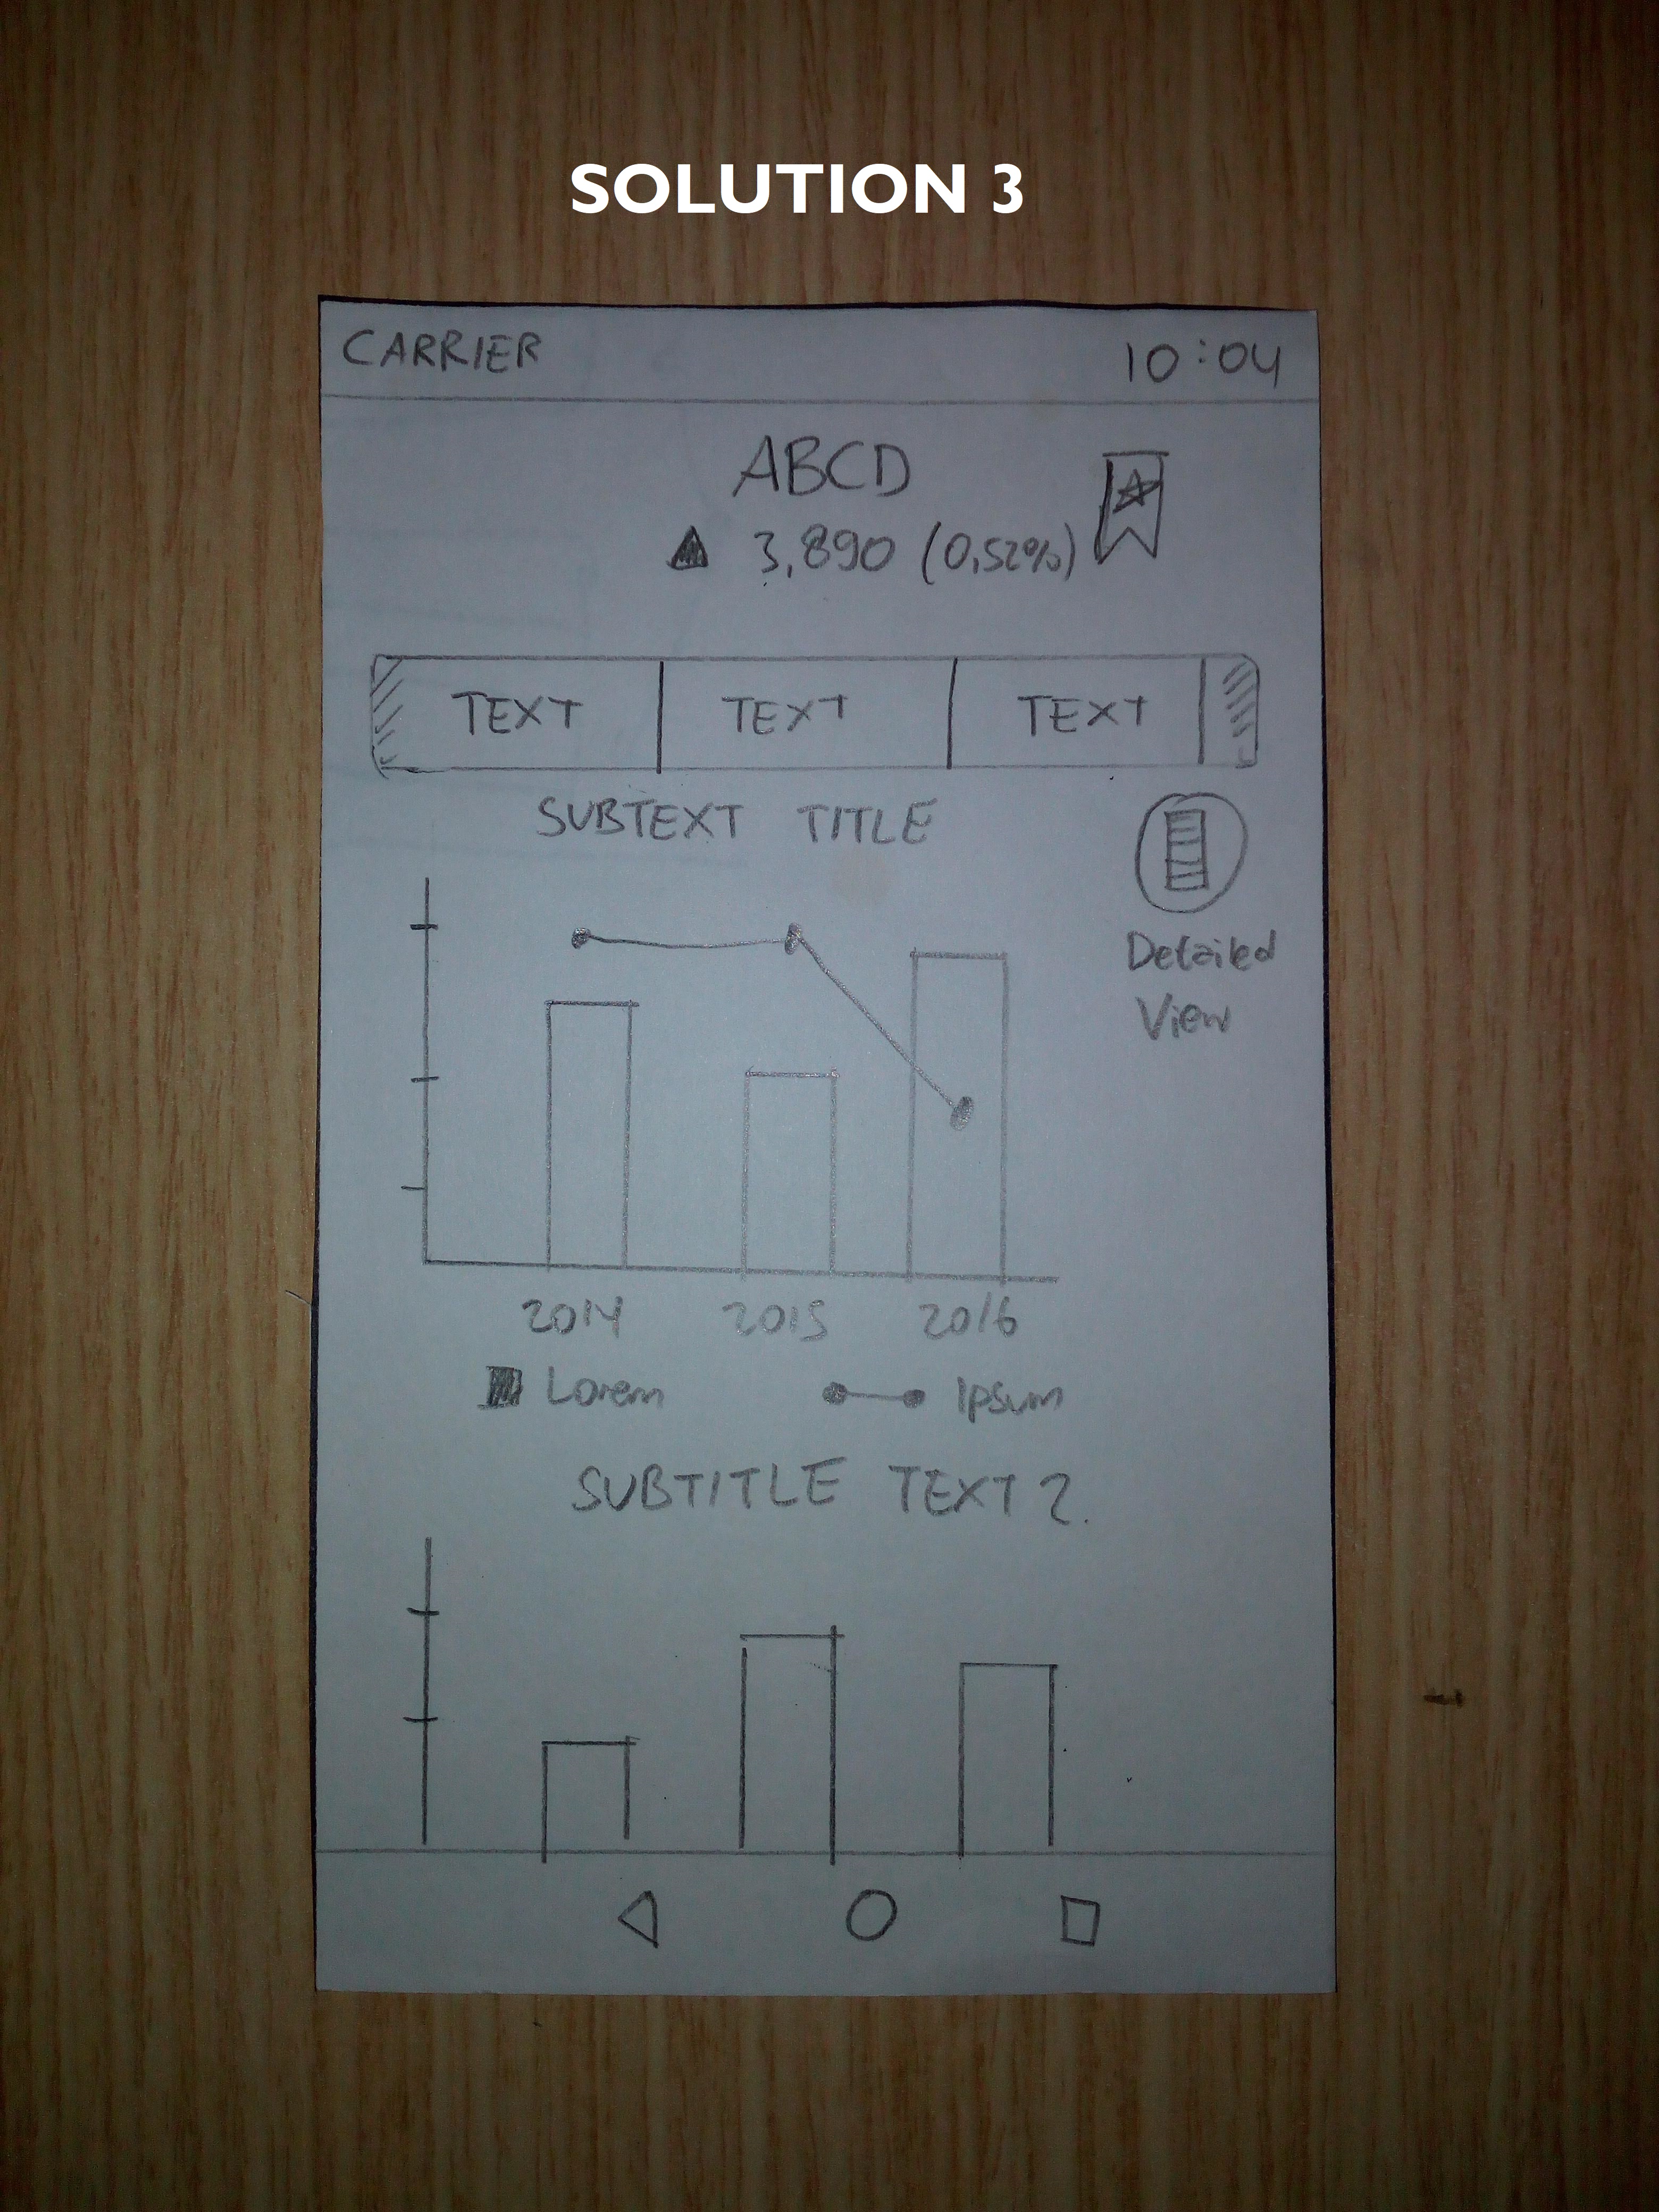 SOLUTION 3
CARRIER 10:04
ABCD
▲ 3,890 (0,52%)
TEXT TEXT TEXT
SUBTEXT TITLE
Detailed
View
2014 2015 2016
Lorem Ipsum
SUBTITLE TEXT 2.